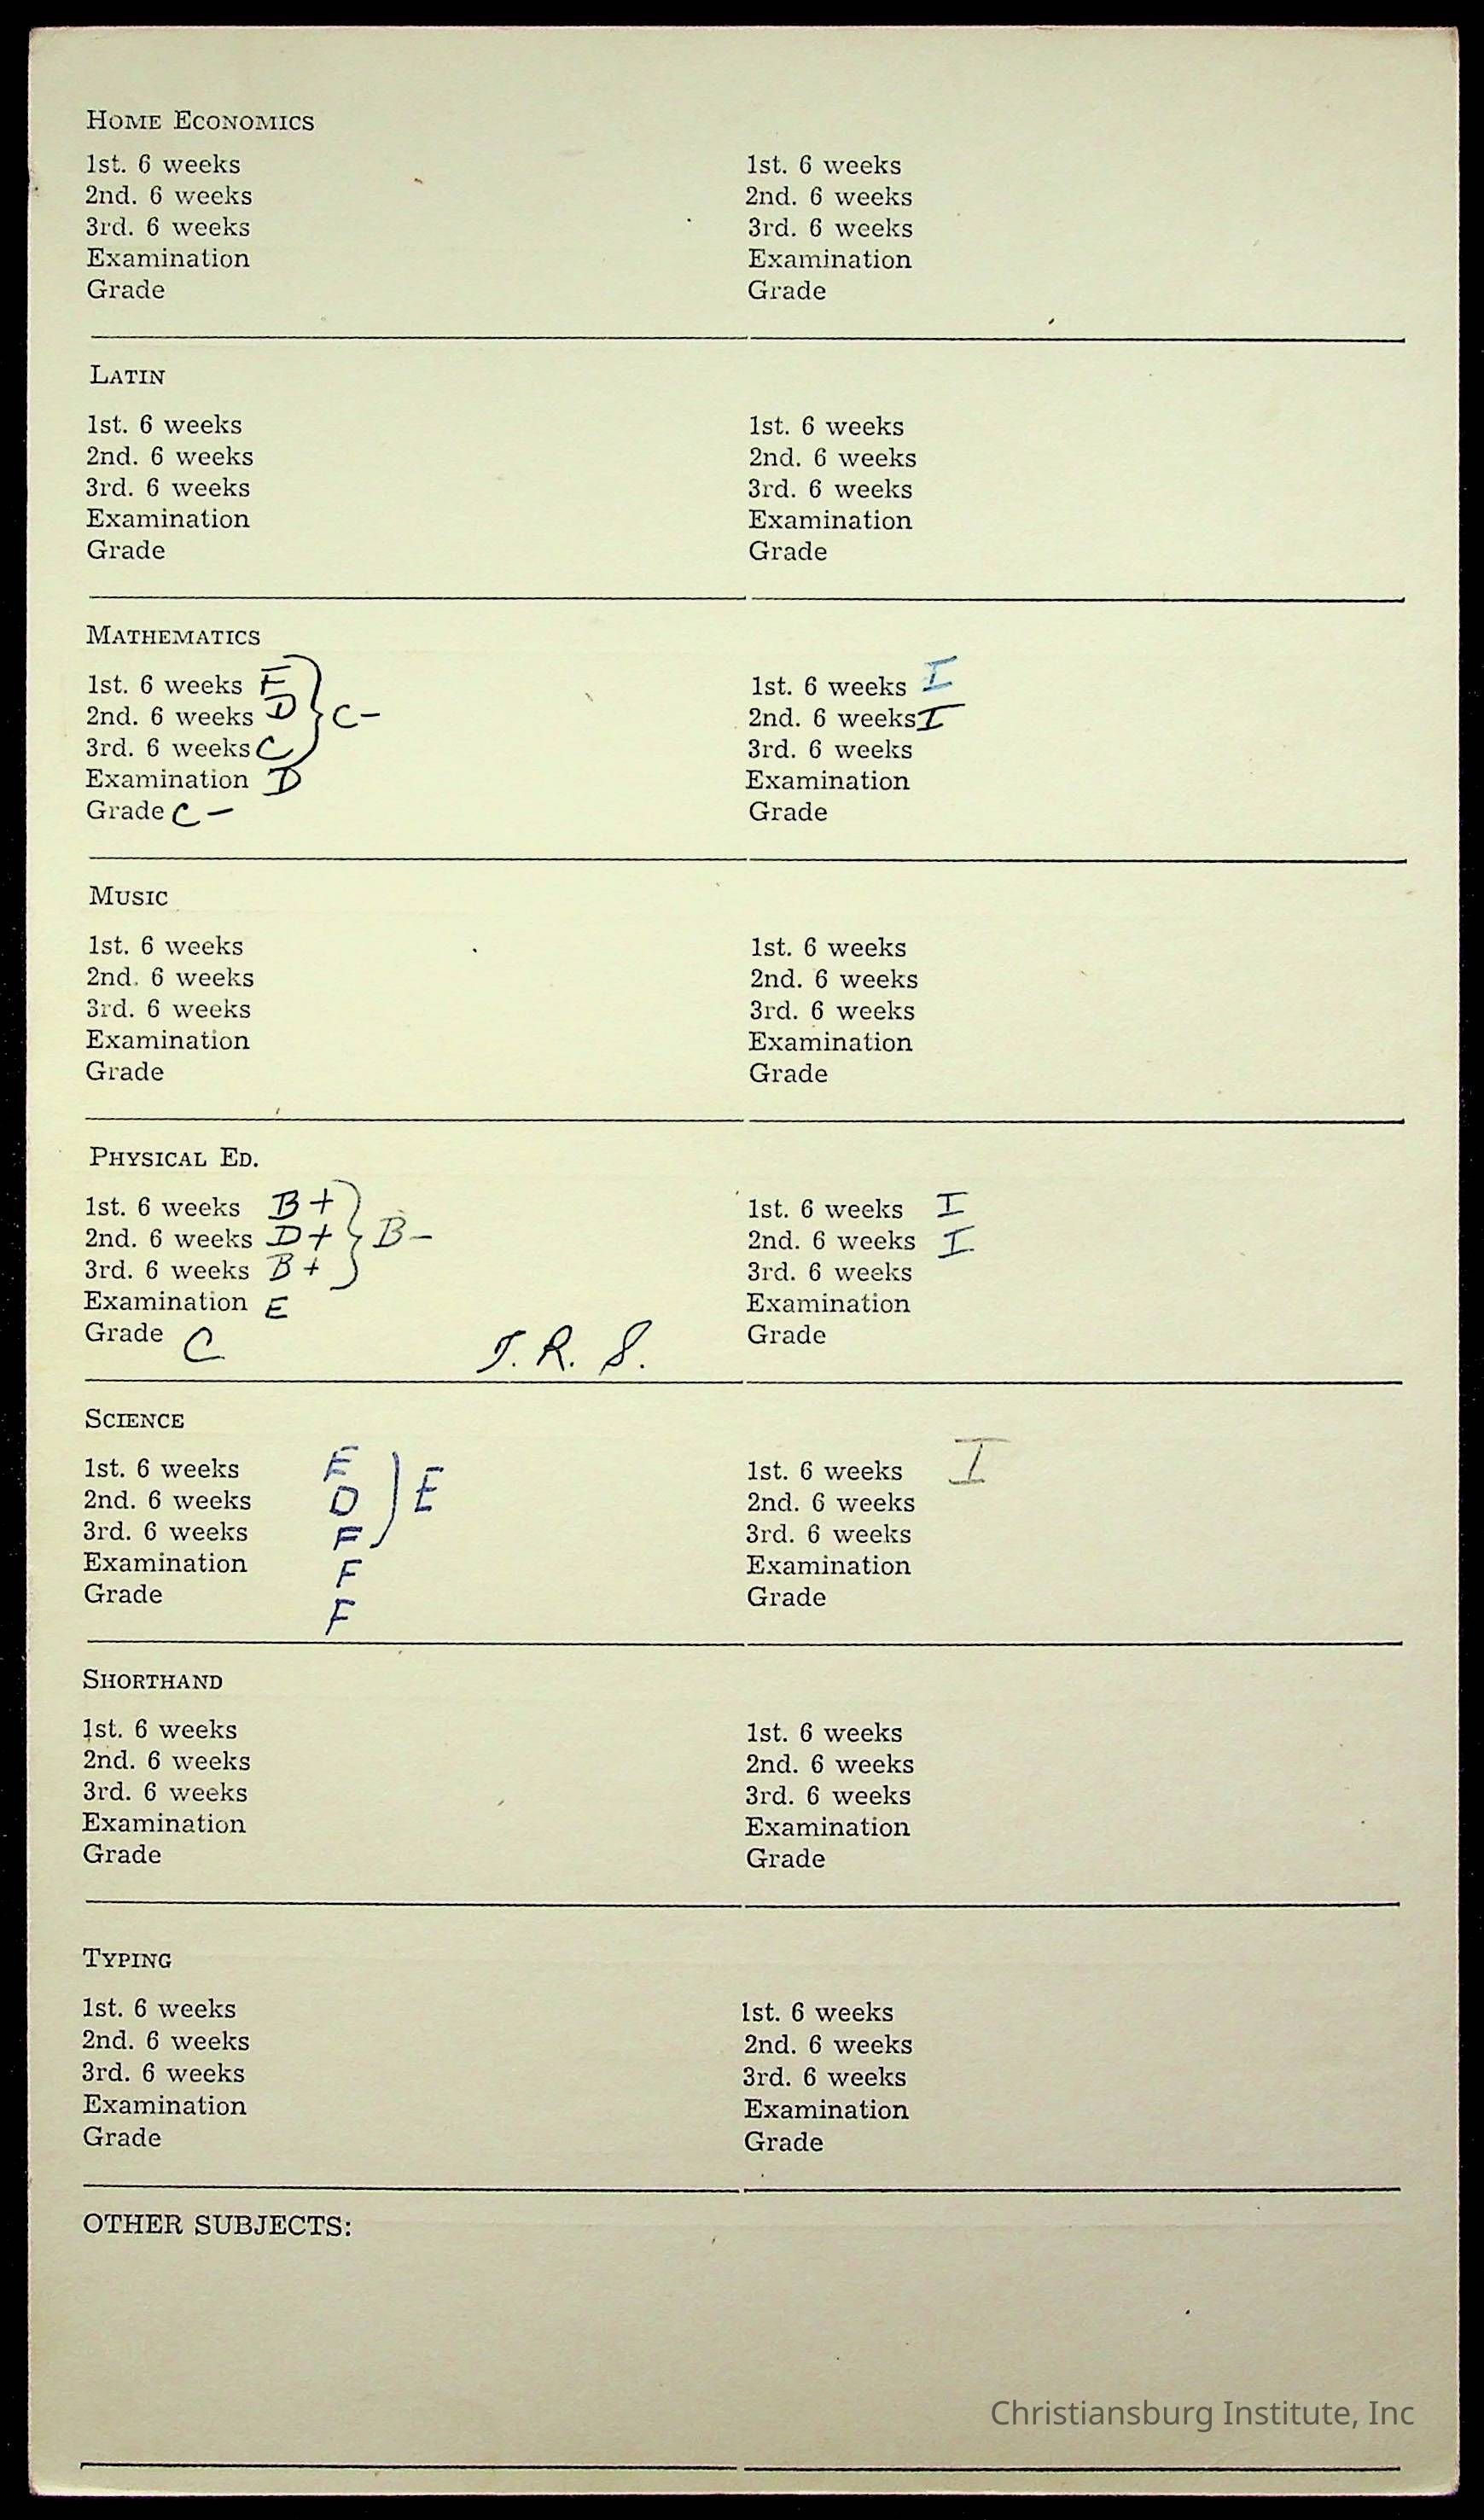 HOME ECONOMICS
1st. 6 weeks 1st. 6 weeks
2nd. 6 weeks 2nd. 6 weeks
3rd. 6 weeks 3rd. 6 weeks
Examination Examination
Grade Grade
LATIN
1st. 6 weeks 1st. 6 weeks
2nd. 6 weeks 2nd. 6 weeks
3rd. 6 weeks 3rd. 6 weeks
Examination Examination
Grade Grade
MATHEMATICS
1st. 6 weeks F 1st. 6 weeks I
2nd. 6 weeks D } C- 2nd. 6 weeks I
3rd. 6 weeks C 3rd. 6 weeks
Examination D Examination
Grade C- Grade
MUSIC
1st. 6 weeks 1st. 6 weeks
2nd. 6 weeks 2nd. 6 weeks
3rd. 6 weeks 3rd. 6 weeks
Examination Examination
Grade Grade
PHYSICAL ED.
1st. 6 weeks B+ 1st. 6 weeks I
2nd. 6 weeks D+ } B- 2nd. 6 weeks I
3rd. 6 weeks B+ 3rd. 6 weeks
Examination E Examination
Grade C J.R.S. Grade
SCIENCE
1st. 6 weeks E 1st. 6 weeks I
2nd. 6 weeks D ) E 2nd. 6 weeks
3rd. 6 weeks F 3rd. 6 weeks
Examination F Examination
Grade F Grade
SHORTHAND
1st. 6 weeks 1st. 6 weeks
2nd. 6 weeks 2nd. 6 weeks
3rd. 6 weeks 3rd. 6 weeks
Examination Examination
Grade Grade
TYPING
1st. 6 weeks 1st. 6 weeks
2nd. 6 weeks 2nd. 6 weeks
3rd. 6 weeks 3rd. 6 weeks
Examination Examination
Grade Grade
OTHER SUBJECTS:
Christiansburg Institute, Inc